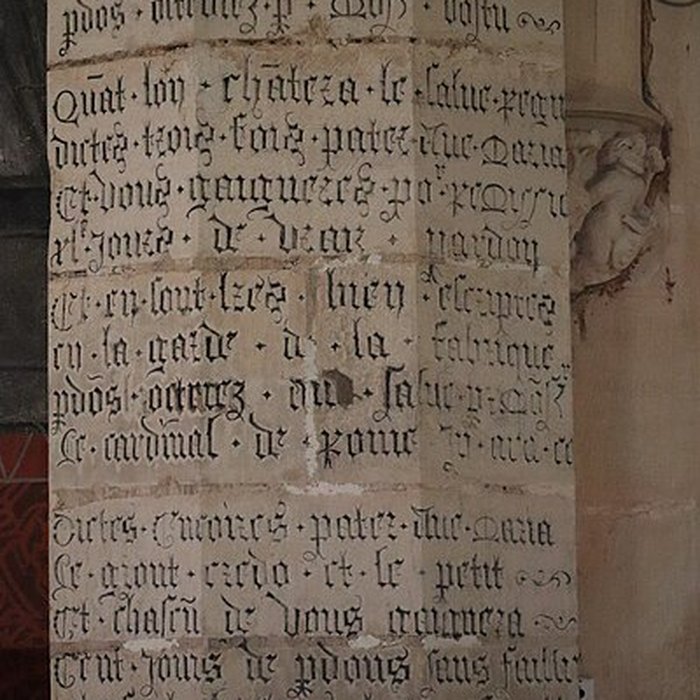 pdōs · octroiez · p · Mōs^r · 
Quāt · lon · chātera · le · salue · regi
dictes · trois · fois · pater · Aue · Maria
Et · vous · gaigneres · po^r
xl · Jours · de · vray · pardon
Et · en · sont · lres · bien · escriptes
en · la · garde · de · la · fabrique
pdōs · octroiez · au · salue · p · Mōs^r
Le · cardinal · de · Rome
Dictes · Encoires · pater · Aue · Maria
Le · grant · credo · et · le · petit
Et · chascū de vous gaignera
Cent · Jours de pdons sans faillir